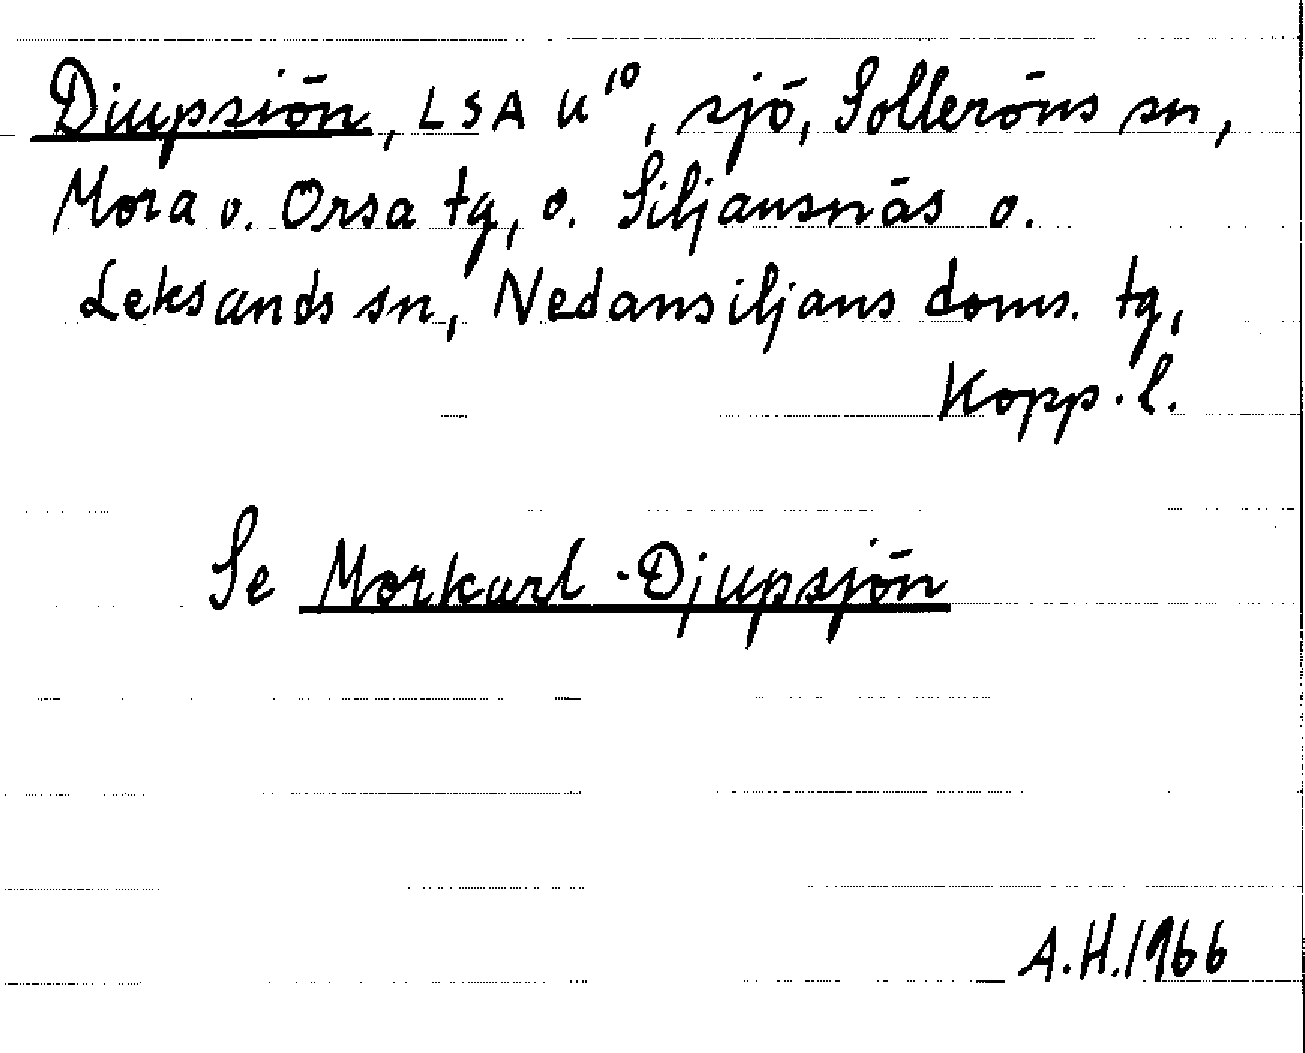 Diupsiön, LSA U¹⁰, sjö, Solleröns sn,
Mora o. Orsa tg, o. Siljansnäs o.
Leksands sn, Nedansiljans doms. tg,
Kopp. l.
Se Morkarl-Djupsjön
A.H.1966